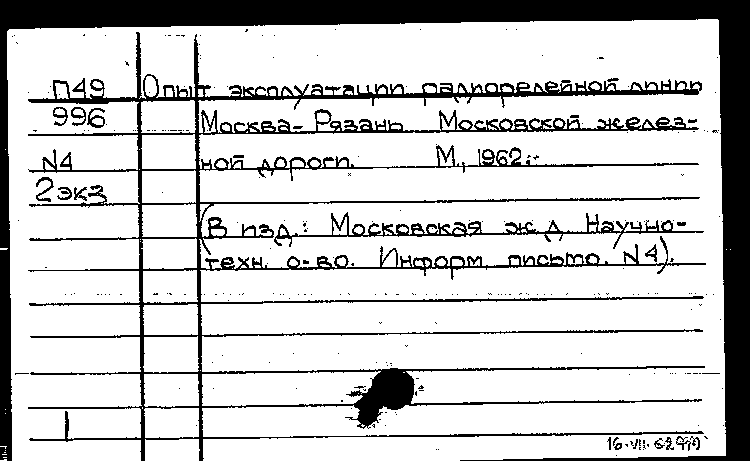 П49 Опыт эксплуатации радиорелейной линии
996 Москва- Рязань Московской желез-
N4 ной дороги. М., 1962.-
2экз
(В изд.: Московская ж.д. Научно-
техн. о-во. Информ. письмо. N4).
16·VII·62